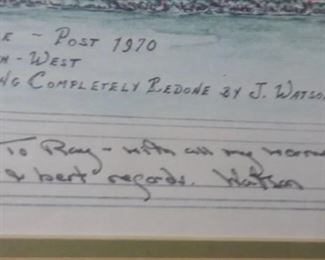 E ~ POST 1970
N - WEST
NG COMPLETELY REDONE BY J. WATSO
To Ray - with all my warme
& best regards. Watson